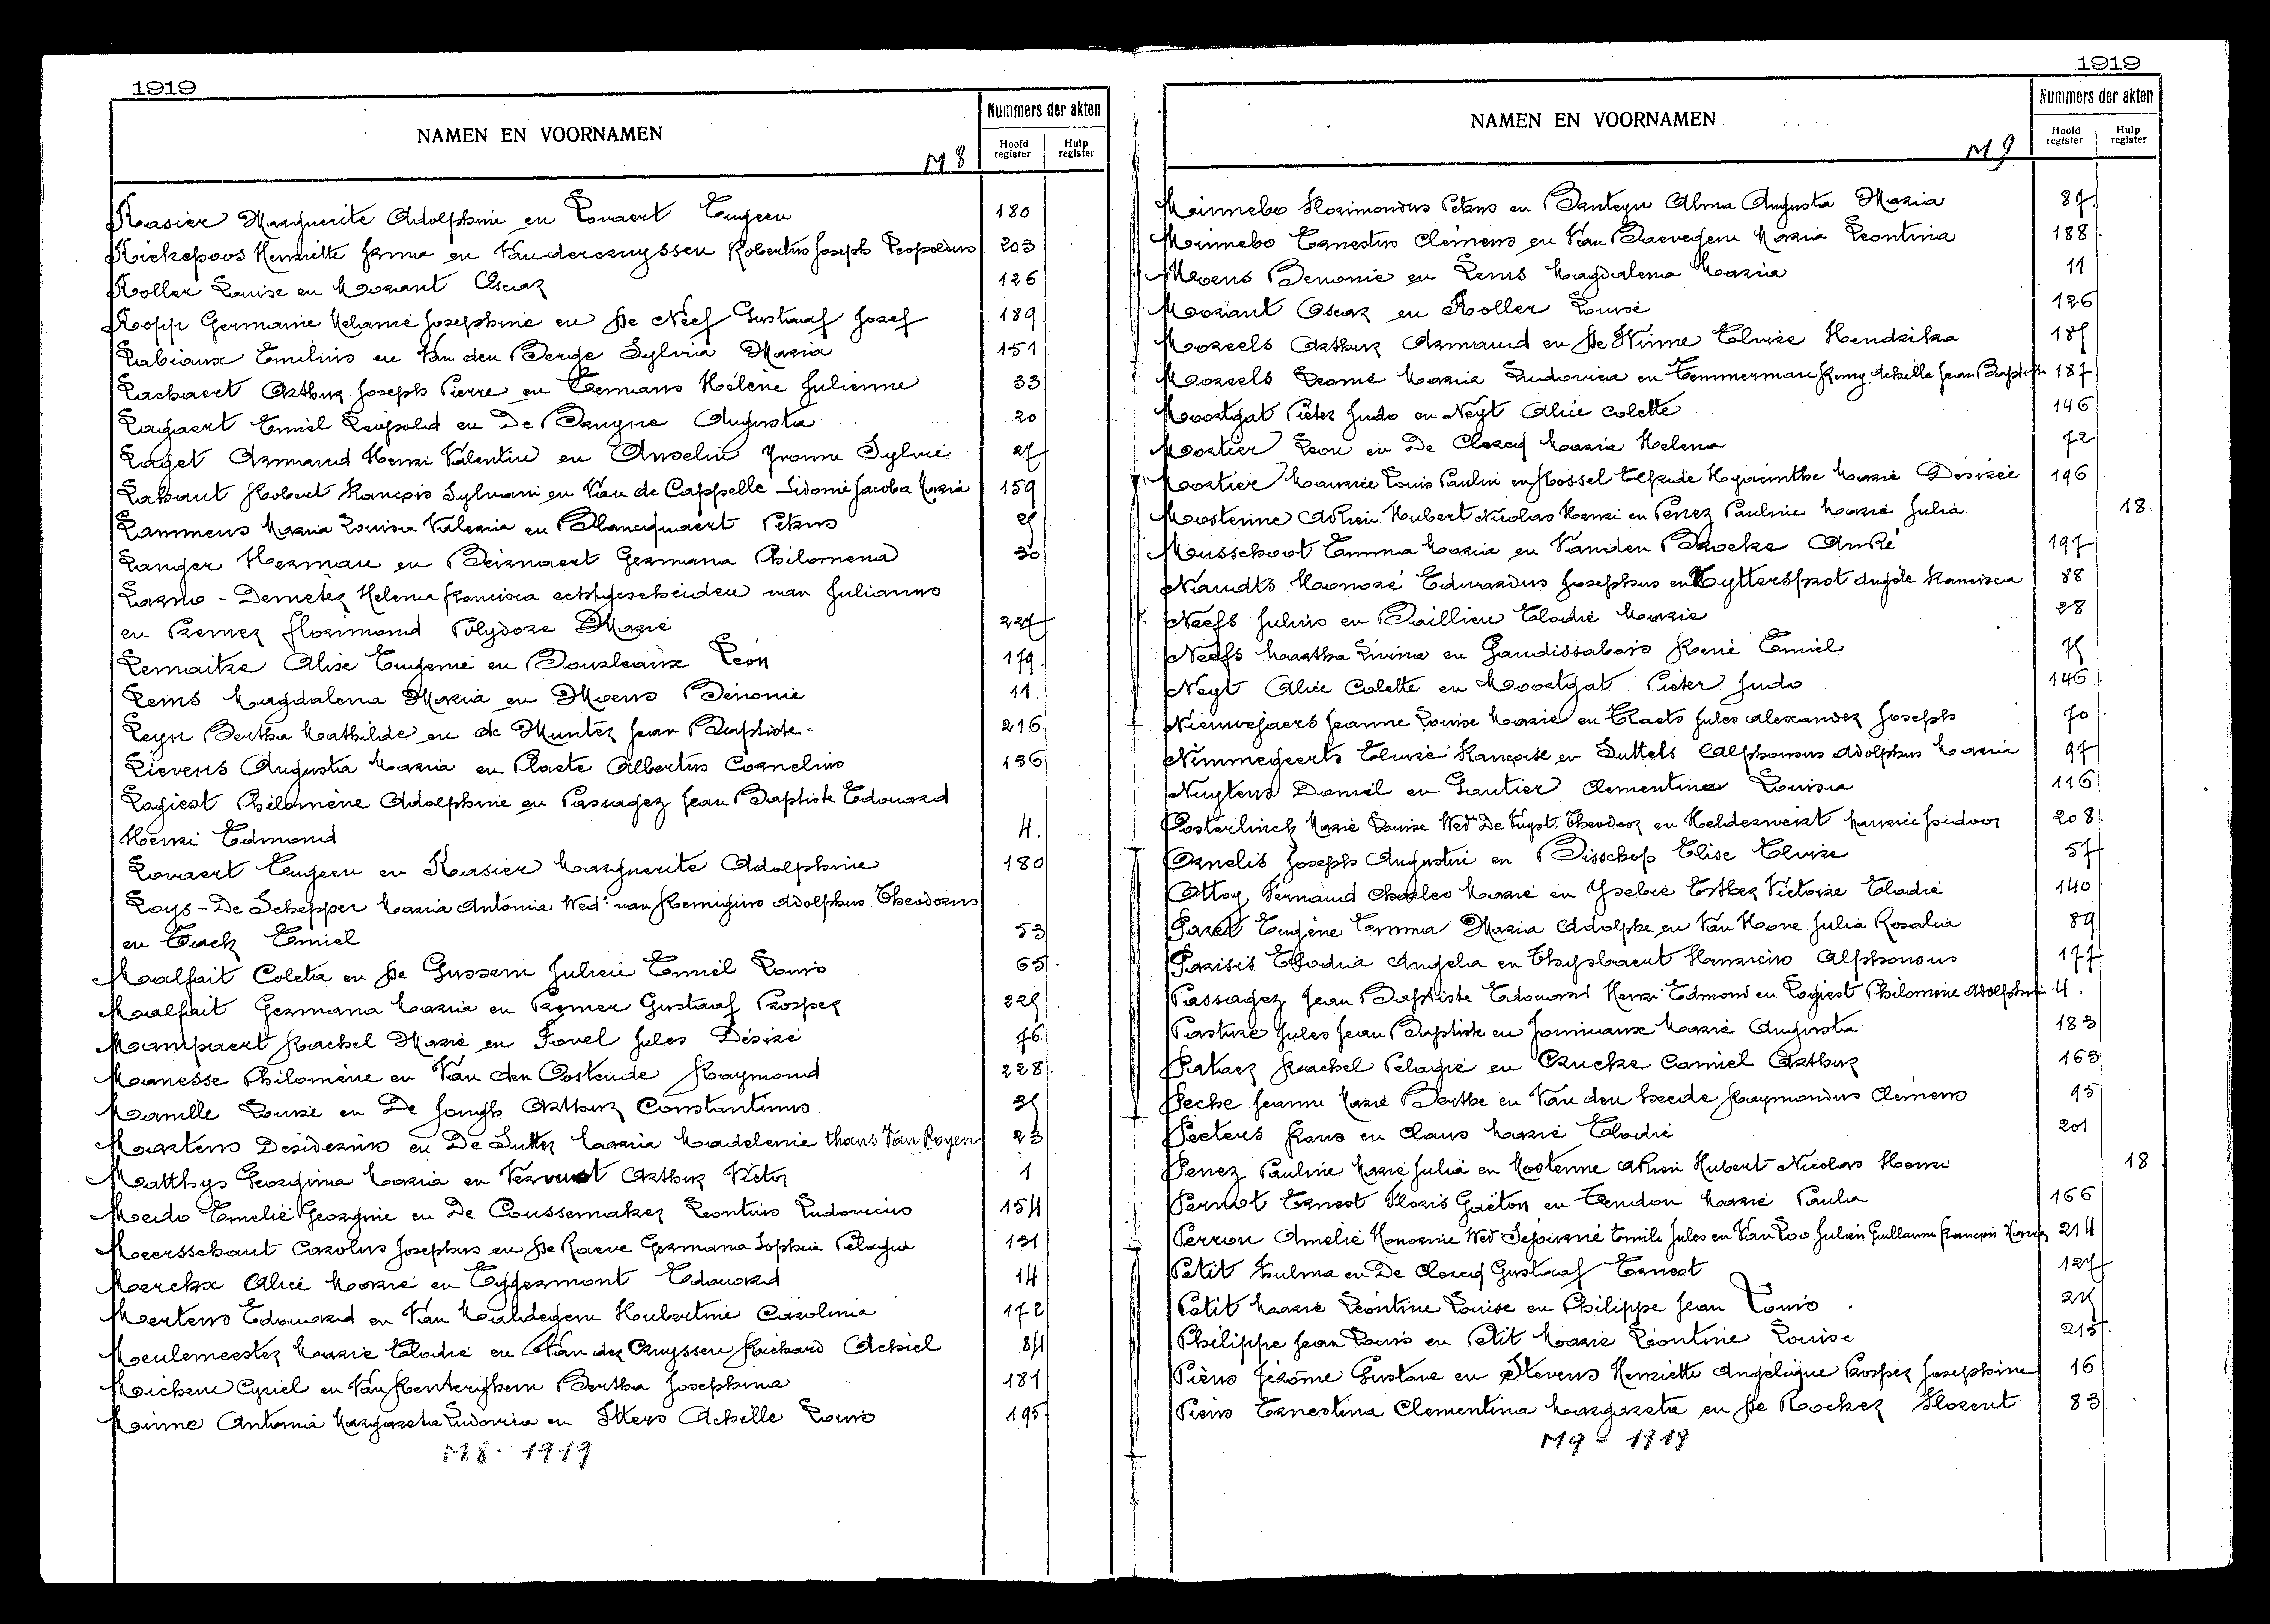 1919
NAMEN EN VOORNAMEN
Nummers der akten
Hoofd register
Hulp register
M 8
Kasier Marguerite Adolphine en Lovaert Eugeen 180
Kiekepoos Henriette Irma en Vandercruyssen Robertus Joseph Leopoldus 203
Koller Louise en Morant Oscar 126
Kopp Germanie Melanie Josephine en De Neef Gustaaf Jozef 189
Labiaux Emilius en Van den Berge Sylvia Maria 151
Lachaert Arthur Joseph Pierre en Termans Hélène Julienne 33
Lagaert Emiel Leopold en De Bruyne Augusta 20
Laget Armand Henri Valentin en Anselin Yvonne Sylvie 27
Lahaut Robert François Sylvani en Van de Cappelle Sidonie Jacoba Maria 159
Lammens Maria Louisa Valeria en Blancquaert Petrus
Langer Herman en Beirnaert Germana Philomena 30
Larno - Demeter Helena Francisca echtgescheiden van Julianus
en Kremer Florimond Polydore Marie 227
Lemaitre Alise Eugenie en Bourleaux Léon 179
Lems Magdalena Maria en Moens Benonie 11.
Leyn Bertha Mathilde en de Munter Jean Baptiste - 216
Lievens Augusta Maria en Plaete Albertus Cornelius 136
Logiest Philomène Adolphine en Passagez Jean Baptiste Edouard
Henri Edmond 4.
Lovaert Eugeen en Kasier Marguerite Adolphine 180
Loys - De Schepper Maria Antonia Wed. van Remigius Adolphus Theodorus
en Tack Emiel 53
Malfait Coleta en De Gussem Julien Emiel Louis 65
Malfait Germana Maria en Kremer Gustaaf Prosper 225
Mampaert Rachel Marie en Fovel Jules Désiré 76
Manesse Philomène en Van den Oostende Raymond 228
Manille Louise en De Jongh Arthur Constantinus 35
Martens Desiderius en De Sutter Maria Madelenie thans Van Royen 23
Matthys Georgina Maria en Vervust Arthur Victor 1
Medo Emelie Georgine en De Coussemaker Leontius Ludovicus 154
Meersschaut Carolus Josephus en De Raeve Germana Sophia Pelagia 131
Merckx Alice Marie en Eggermont Edouard 14
Mertens Edouard en Van Maldegem Hubertine Carolinia 172
Meulemeester Marie Elodie en Van der Cruyssen Richard Achiel 84
Michem Cyriel en Van Renterghem Bertha Josephina 181
Minne Antonia Margareta Ludovica en Ittens Achille Louis 195
M 8 - 1919
1919
NAMEN EN VOORNAMEN
Nummers der akten
Hoofd register
Hulp register
M 9
Minnebo Florimondus Petrus en Bruteyn Alma Augusta Maria 87
Minnebo Ernestus Clemens en Van Daevegem Maria Leontina 188
Moens Benonie en Lems Magdalena Maria 11
Morant Oscar en Koller Louise 126
Moreels Arthur Armand en De Winne Eluize Hendrika 185
Moreels Leonie Maria Ludovica en Temmerman Remy Achille Jean Baptiste 187
Moortgat Pieter Judo en Neyt Alice Colette 146
Mortier Leon en De Clercq Maria Helena 72
Mortier Maurice Louis Paulin en Rossel Elfride Hyacinthe Marie Desirée 196
Mostenne Adrien Hubert Nicolas Henri en Penez Pauline Marie Julia 18
Musschoot Emma Maria en Vanden Broeke André 197
Naudts Honoré Eduardus Josephus en Uyttersprot Angèle Francisca 88
Neefs Julius en Baillieu Elodie Marie 28
Neefs Martha Livina en Gaudissabois René Emiel 75
Neyt Alice Colette en Moortgat Pieter Judo 146
Nieuwejaers Jeanne Louise Marie en Claets Jules Alexander Joseph 70
Nimmegeerts Eluize Françoise en Suttels Alphonsus Adolphus Maria 97
Nuytens Daniel en Gautier Clementina Louisa 116
Oosterlinck Marie Louise Wed. De Vuyst Theodoor en Helderweirt Maurice Isidoor 208
Ornelis Joseph Augustin en Bisschop Elise Eluize 57
Ottoy Fernand Charles Marie en Yselvie Esther Victorie Elodie 140
Parel Eugène Emma Maria Adolphe en Van Hove Julia Rosalia 89
Parisis Elodia Angela en Thysbaert Henricus Alphonsus 177
Passagez Jean Baptiste Edouard Henri Edmond en Logiest Philomène Adolphine 4.
Pasture Jules Jean Baptiste en Jominaux Marie Augusta 183
Pataer Rachel Pelagie en Crucke Camiel Arthur 163
Peche Jeanne Marie Berthe en Van den heede Raymondus Clemens 95
Peeters Frans en Claus Marie Elodie 201
Penez Pauline Marie Julia en Mostenne Adrien Hubert Nicolas Henri 18
Pernot Ernest Floris Gaëton en Trendon Marie Paula 166
Perron Amelie Honorine Wed Sejournié Emile Jules en Van Loo Julien Guillaume François 214
Petit Hulma en De Clercq Gustaaf Ernest 127
Petit Marie Léontine Louise en Philippe Jean Louis 215
Philippe Jean Louis en Petit Marie Léontine Louise 215
Piens Jérôme Gustave en Stevens Henriette Angélique Prosper Josephine 16
Piens Ernestina Clementina Margareta en De Rocker Florent 83
M 9 - 1919